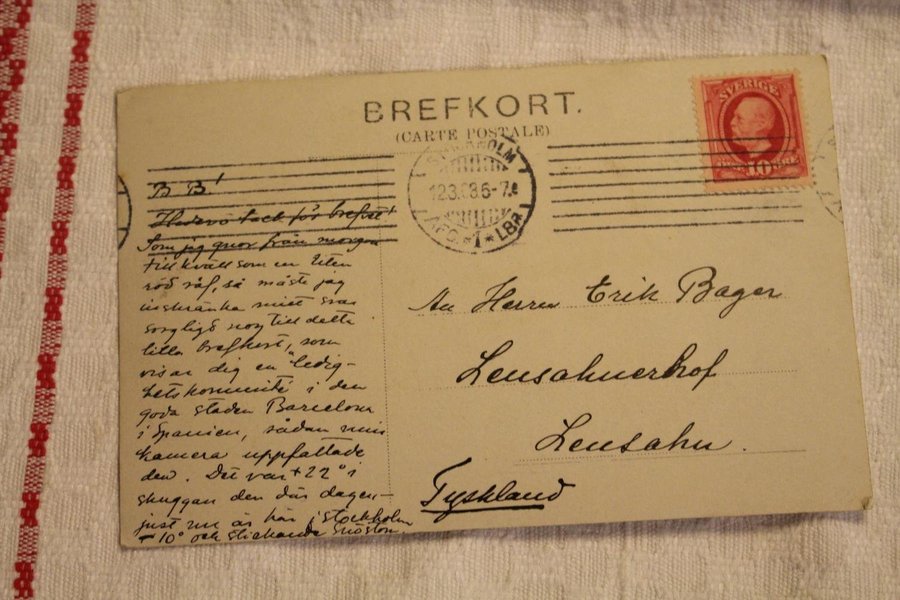 BREFKORT.
(CARTE POSTALE)
SVERIGE
10
STOCKHOLM
12.3.08.6-7.e
1 LBR
B B!
tack för brefvet!
Som jag gnor från morgon
till kväll som en liten
röd räf, så måste jag
inskränka mitt svar
sorgligt nog till detta
lilla brefkort, som
visar dig en "ledig-
hetskommitté i den
goda staden Barcelona
i Spanien, sådan min
kamera uppfattade
den. Det var +22° i
skuggan den där dagen -
just nu är här i Stockholm
-10° och stickande snöstorm.
An Herrn Erik Bager
Lensahnerhof
Lensahn.
Tyskland